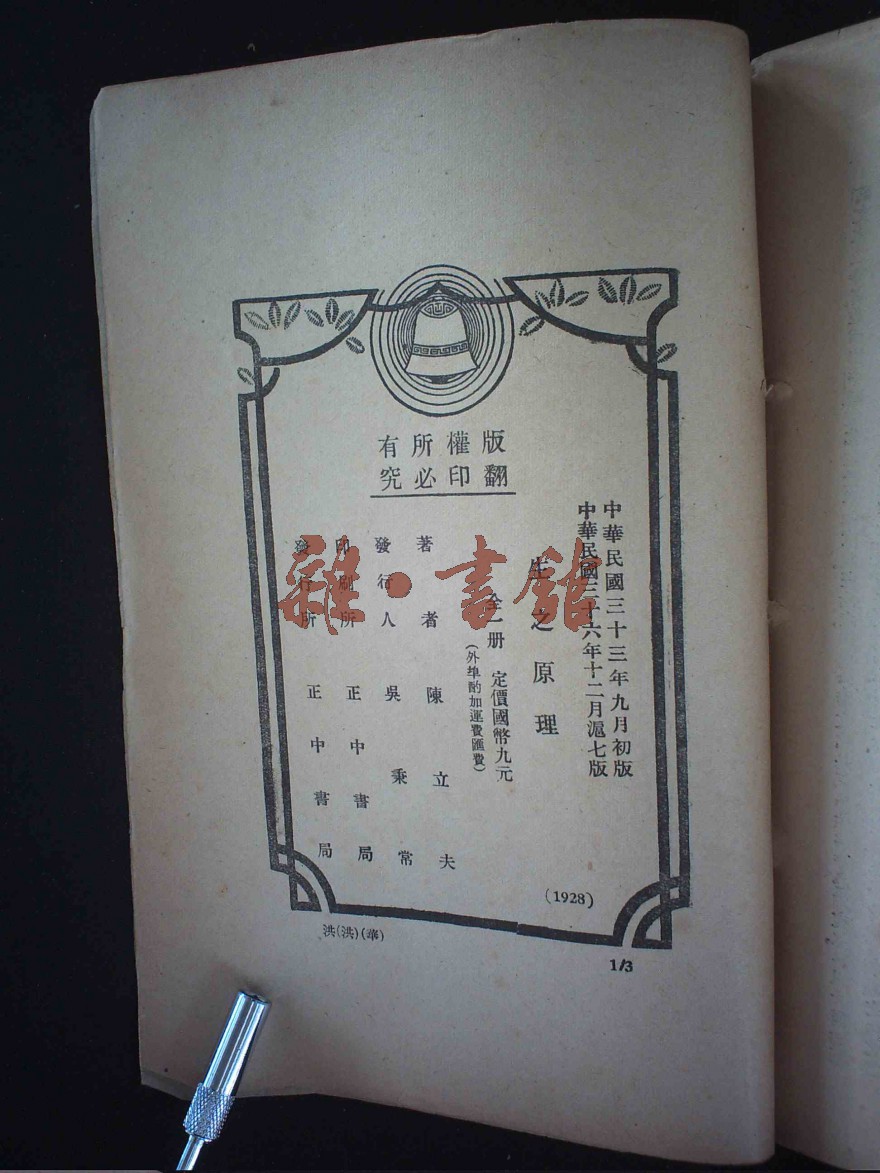 版權所有
翻印必究
中華民國三十三年九月初版
中華民國三十六年十二月滬七版
生之原理
全一册 定價國幣九元
(外埠酌加運費匯費)
著者 陳立夫
發行人 吳秉常
印刷所 正中書局
發行所 正中書局
(1928)
洪(洪)(華)
1/3
雜·書館